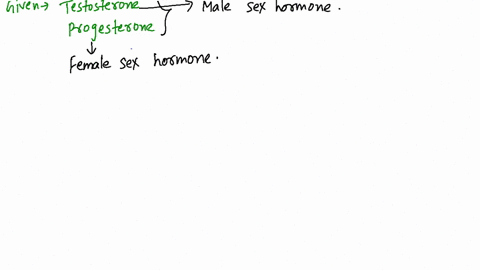 Given→ Testosterone → Male sex hormone.
Progesterone
↓
Female sex hormone.